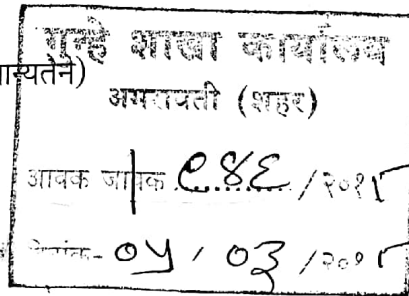 गुन्हे शाखा कार्यालय
मान्यतेने)
अमरावती (शहर)
आवक जावक ९४६ / २०१५
दिनांक- ०५ / ०३ / २०१५